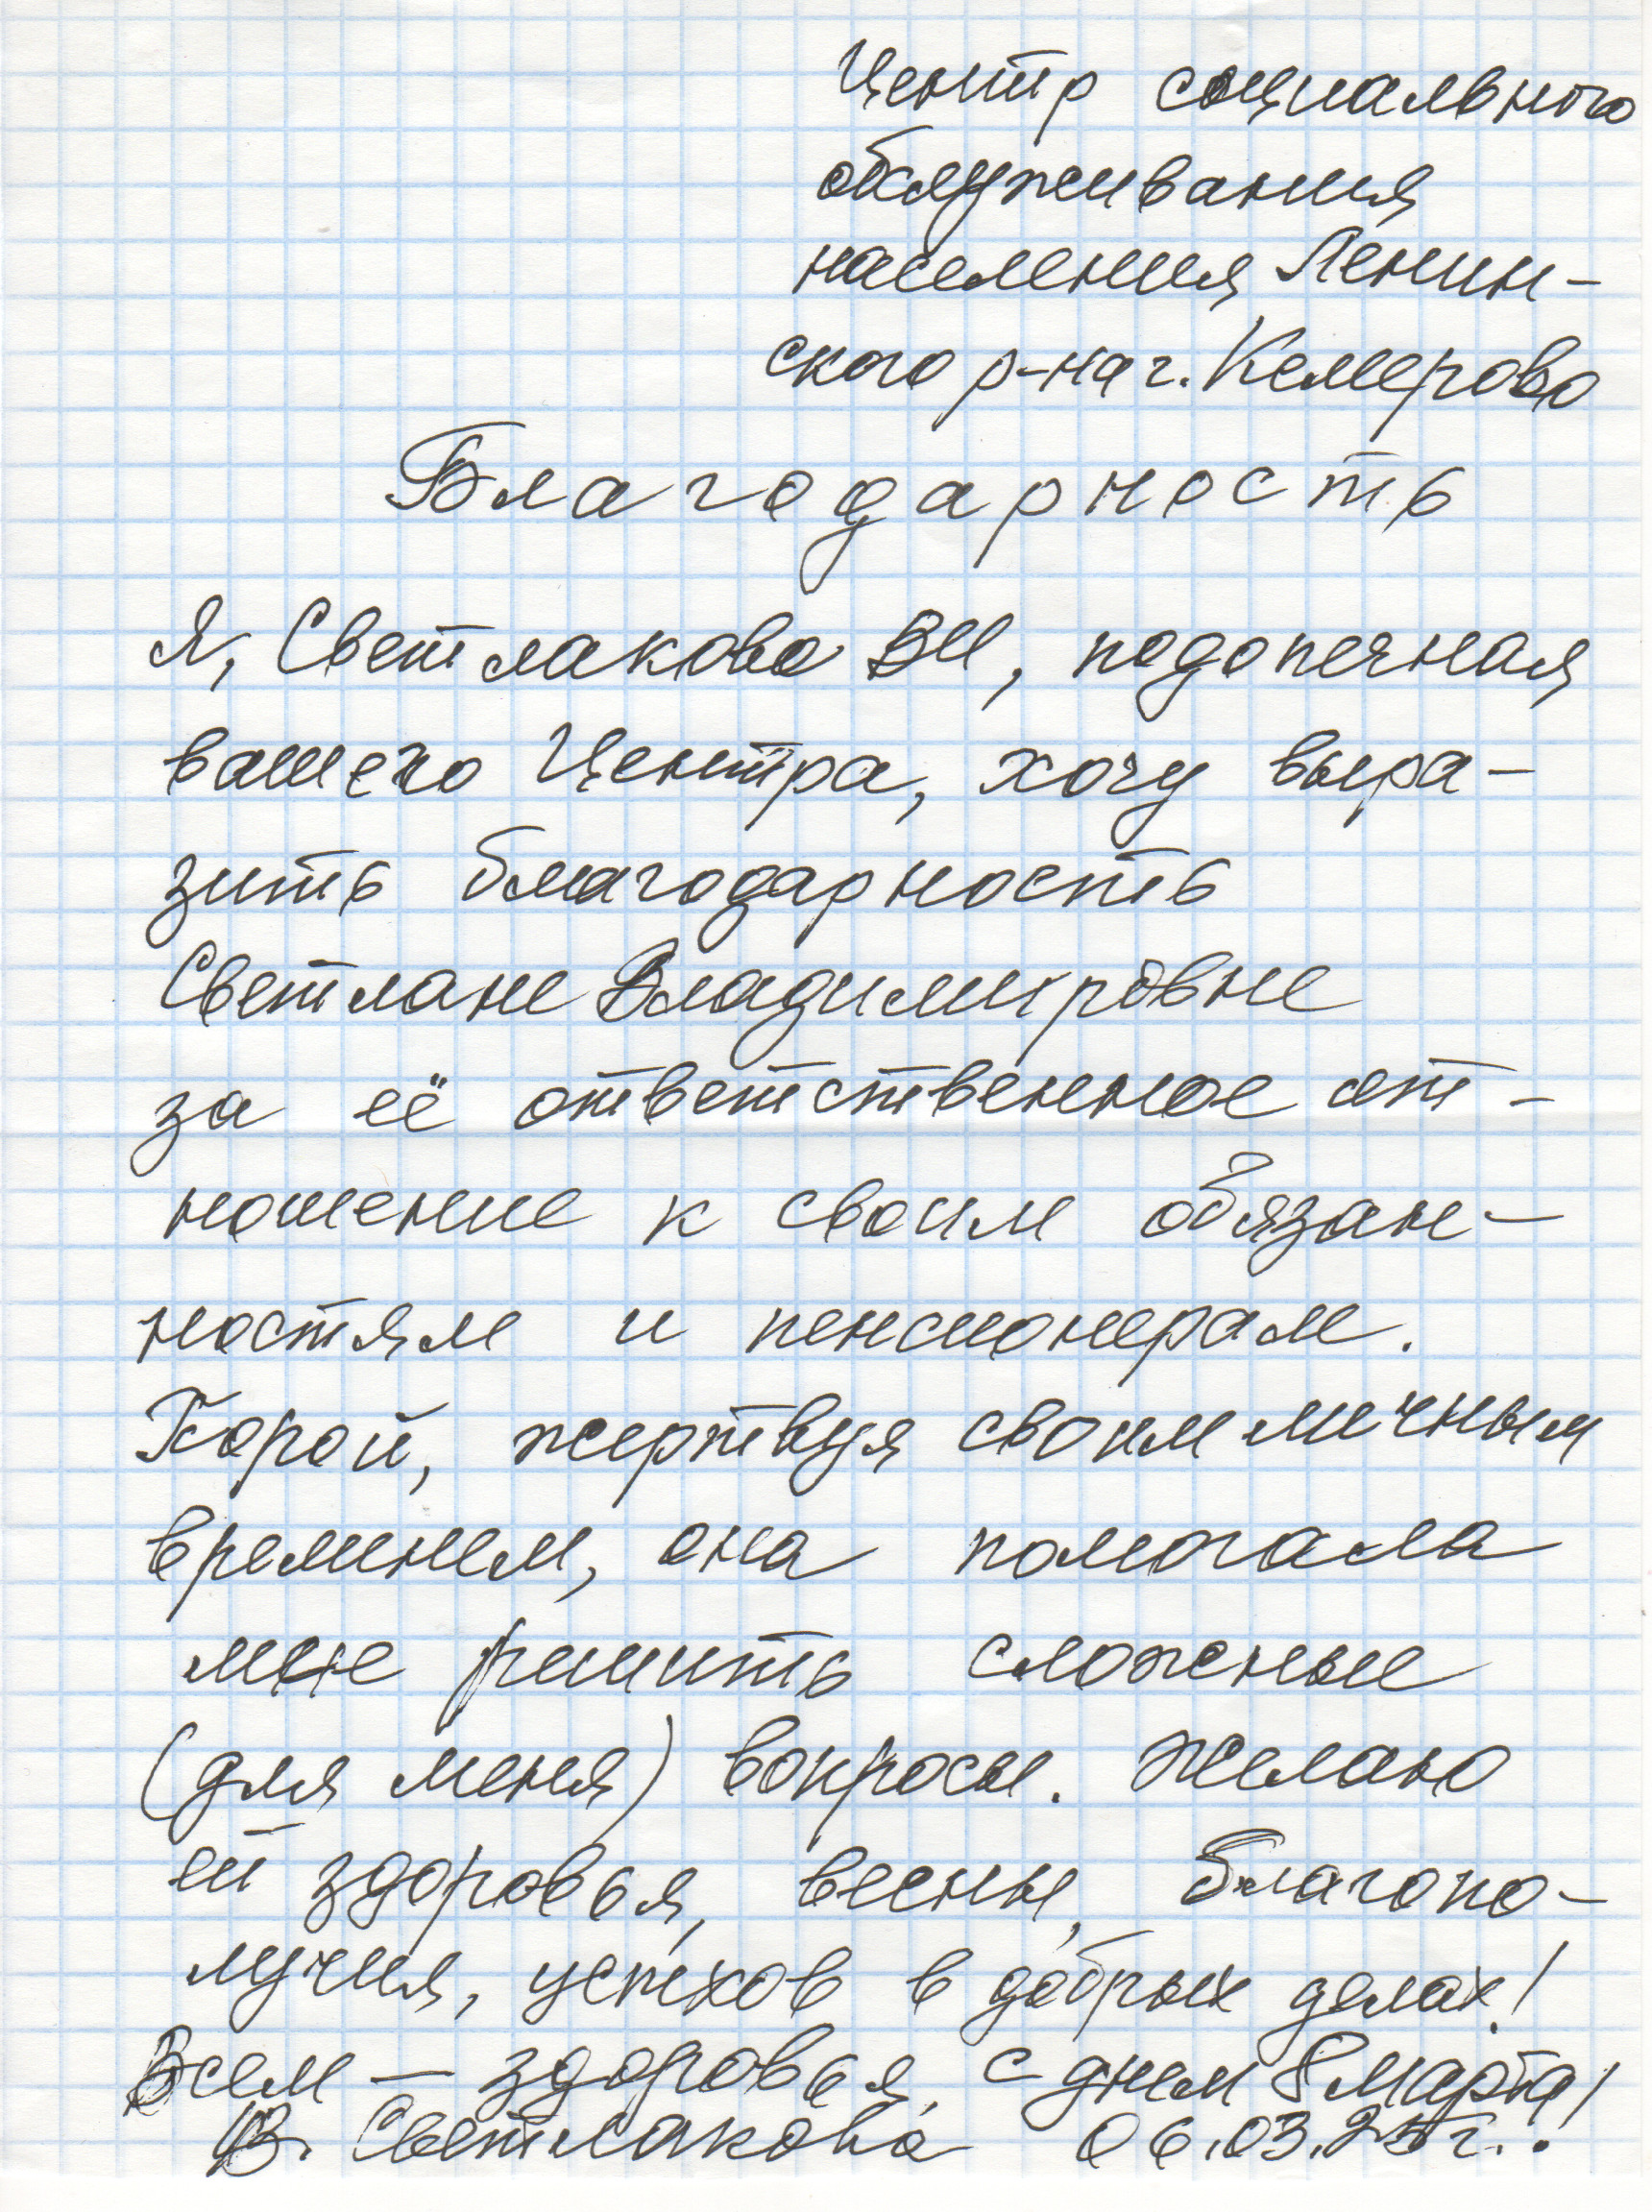 Центр социального
обслуживания
населения Ленин-
ского р-на г. Кемерово
Благодарность
Я, Светлакова ВИ, подопечная
вашего Центра, хочу выра-
зить благодарность
Светлане Владимировне
за её ответственное от-
ношение к своим обязан-
ностям и пенсионерам.
Порой, жертвуя своим личным
временем, она помогала
мне решить сложные
(для меня) вопросы. Желаю
ей здоровья, весны, благопо-
лучия, успехов в добрых делах!
Всем – здоровья, с днем 8 марта!
В. Светлакова 06.03.25г.